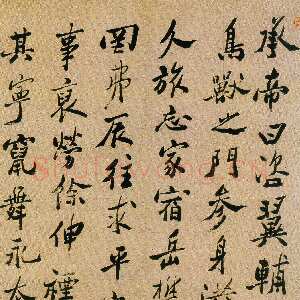 承帝曰咨翼輔
鳥獸之門參身
久旅忘家宿岳
罔弗辰往求平
事裒勞餘伸禋
其寧竄舞永